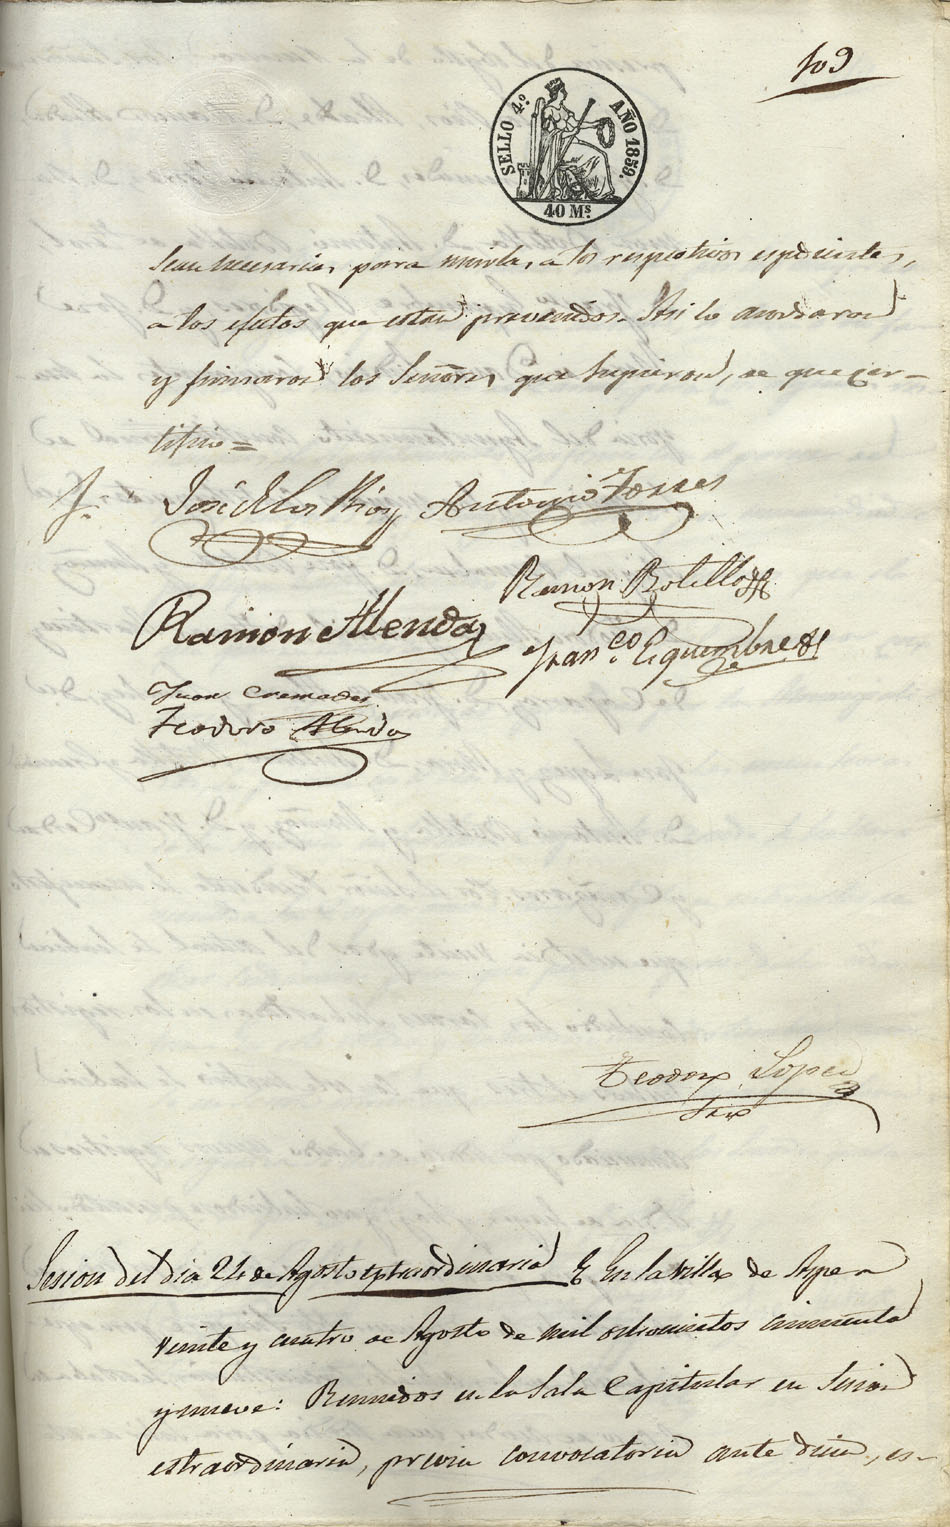 109
SELLO 4.º AÑO 1859.
40 Ms.
sean necesarias, para unirlas, a los respectivos espedientes,
a los efectos que estan prevenidos. Asi lo acordaron
y firmaron los Señores, que supieron, de que cer-
tifico =
José de los Rios Antonio Torres
Ramon Botella
Ramon Alenda
Fran.co
Juan Cremades
Teodoro Alenda
Teodoro Lopez
Srio
Sesion del dia 24 de Agosto extraordinaria En la villa de Aspe a
veinte y cuatro de Agosto de mil ochocientos cincuenta
y nueve: Reunidos en la Sala Capitular en Sesion
estraordinaria, previa convocatoria ante diem, es-